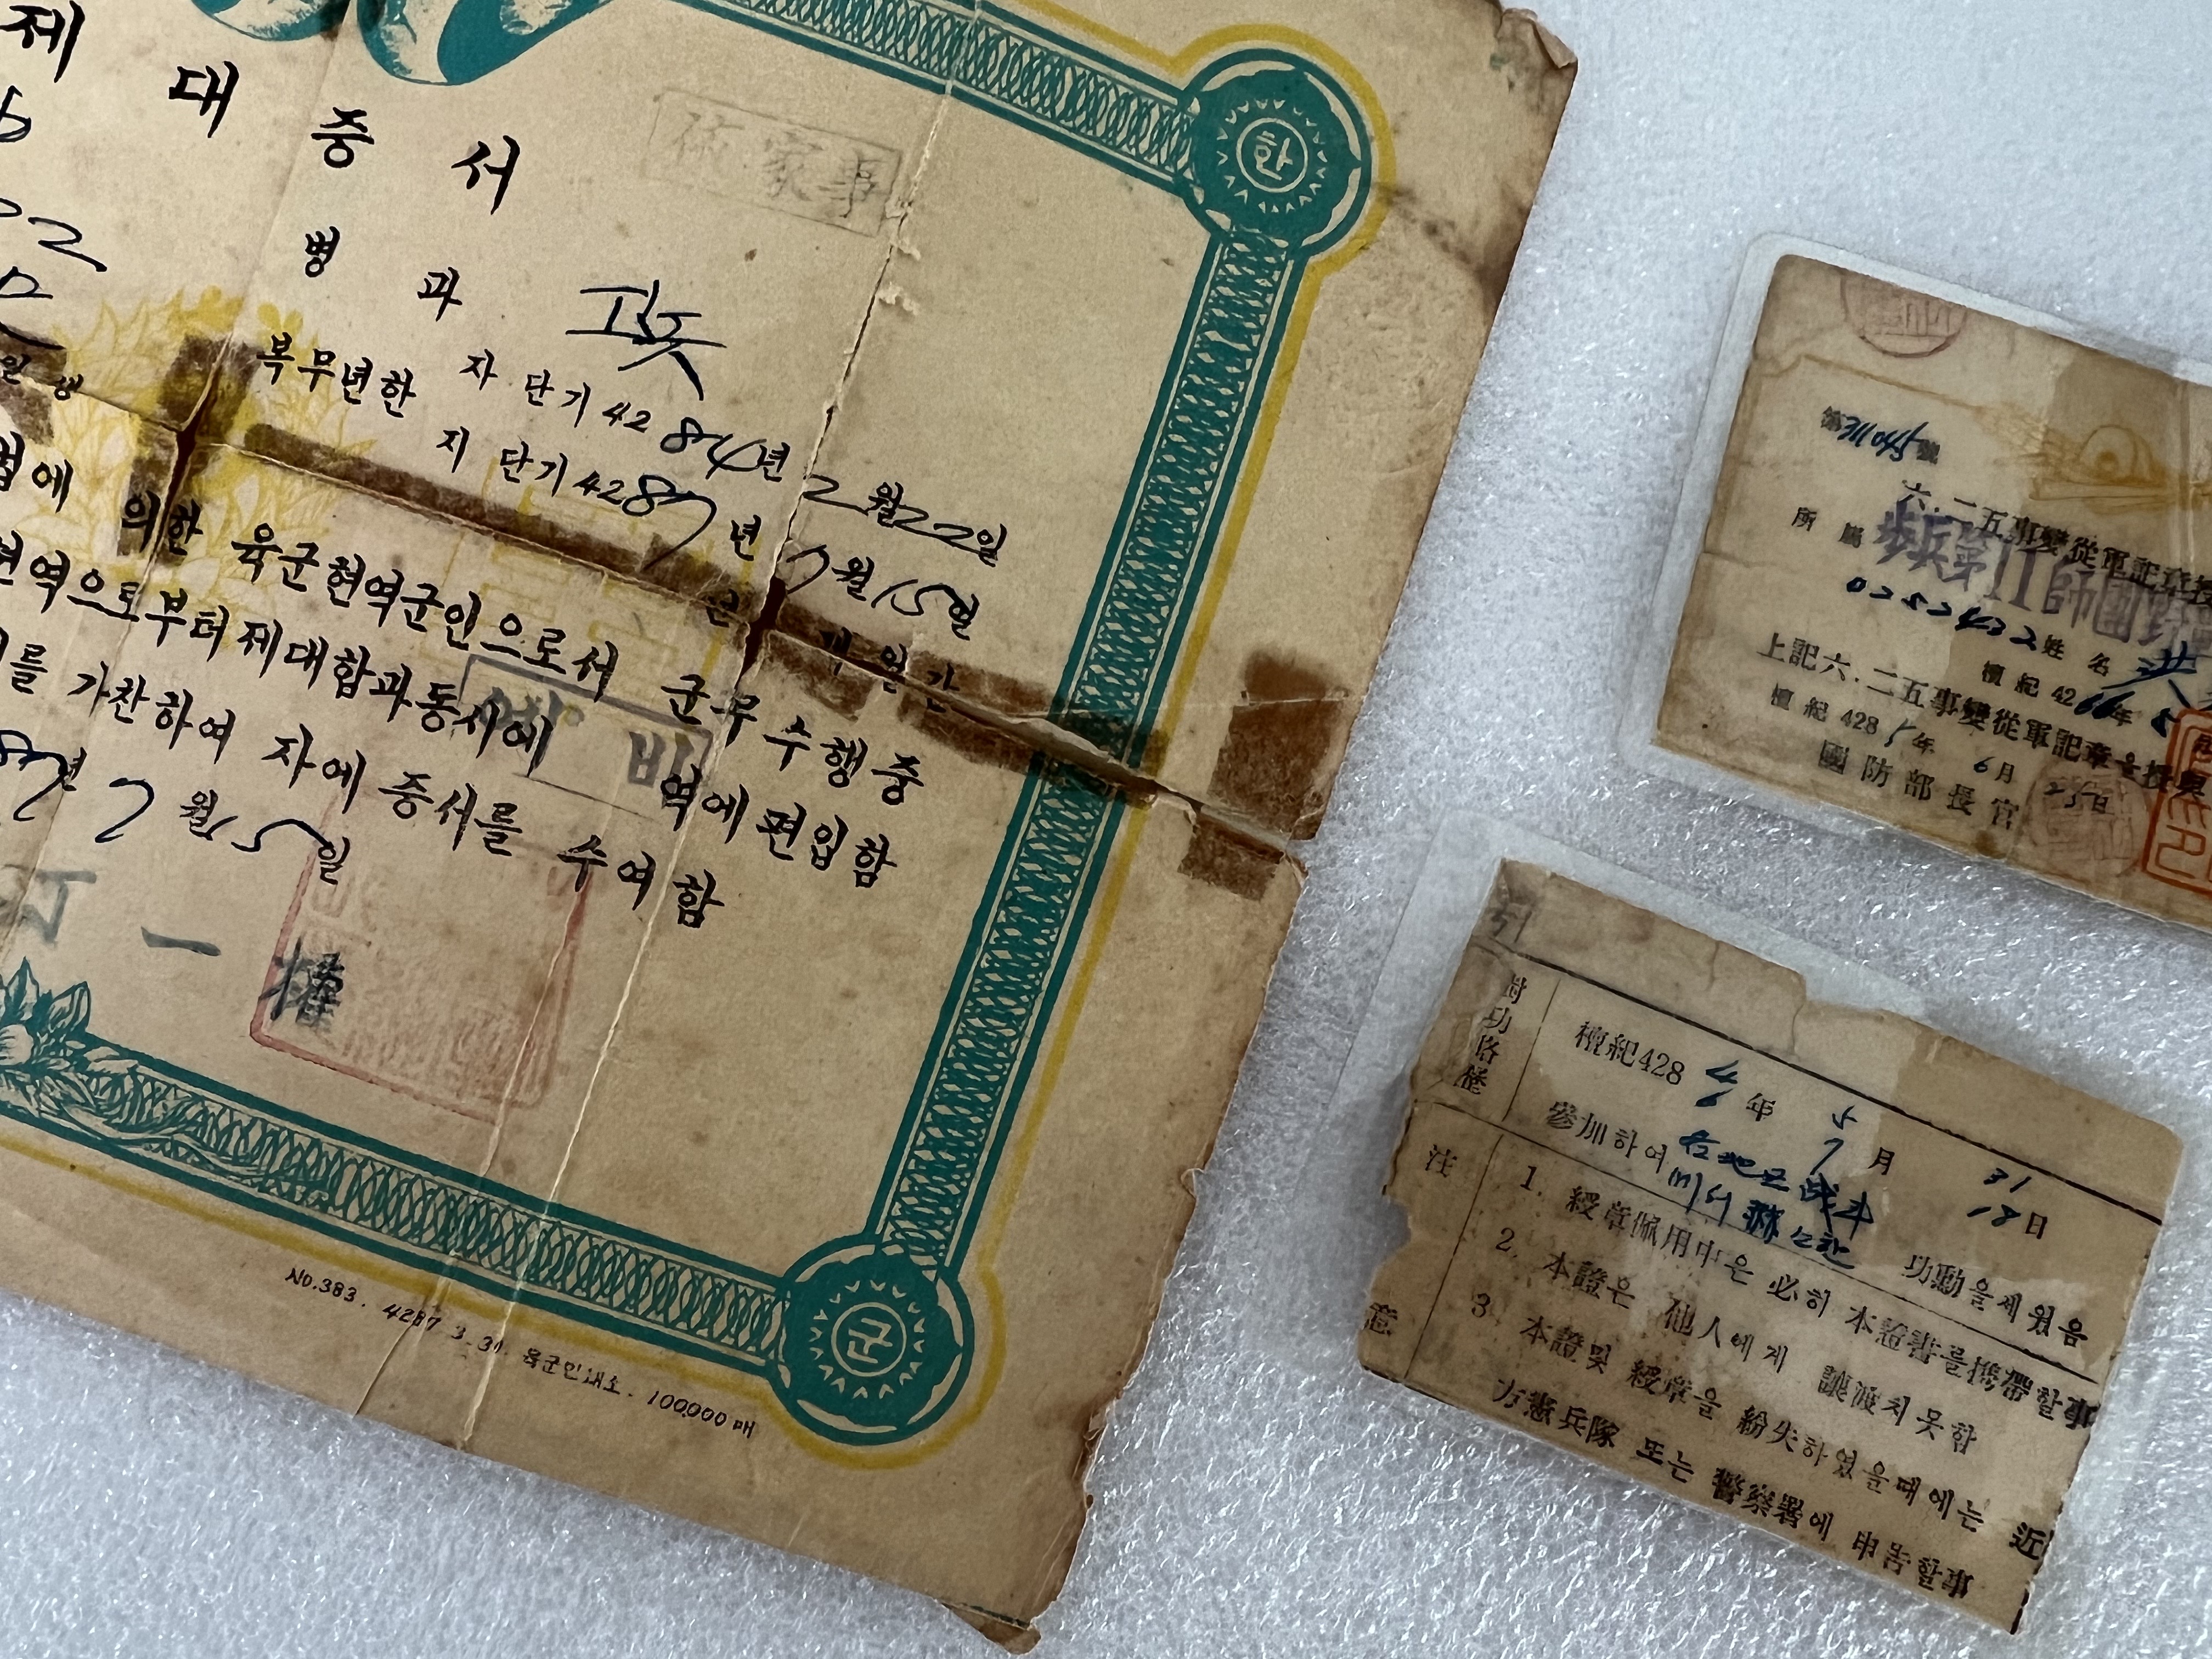 제 대 증 서
병 과 工兵
복무년한
자 단기 4284년 2월 22일
지 단기 4287년 7월 15일
년 개월간
법에 의한 육군현역군인으로서 군무 수행중
현역으로부터 제대함과동시에 예비역에편입함
를 가찬하여 자에 증서를 수여함
87년 7월 15일
一 權
한
군
NO.383. 4287 3-31. 육군인쇄소. 100,000매
第311045號
六.二五事變從軍記章授
所屬 步兵第11師團
0252432 姓名 洪
檀紀 4266年
上記 六.二五事變從軍記章을 授與
檀紀 4285年 6月 25日
國防部長官
樹功
檀紀428 4年 5月 31日
6 7 18
參加하여 各地区战斗 功勳을세웠음
에서
注意
1. 綬章佩用中은 必히 本證書를携帶할事
2. 本證은 他人에게 讓渡치못함
3. 本證및 綬章을 紛失하였을때에는 近
方憲兵隊 또는 警察署에 申告할事